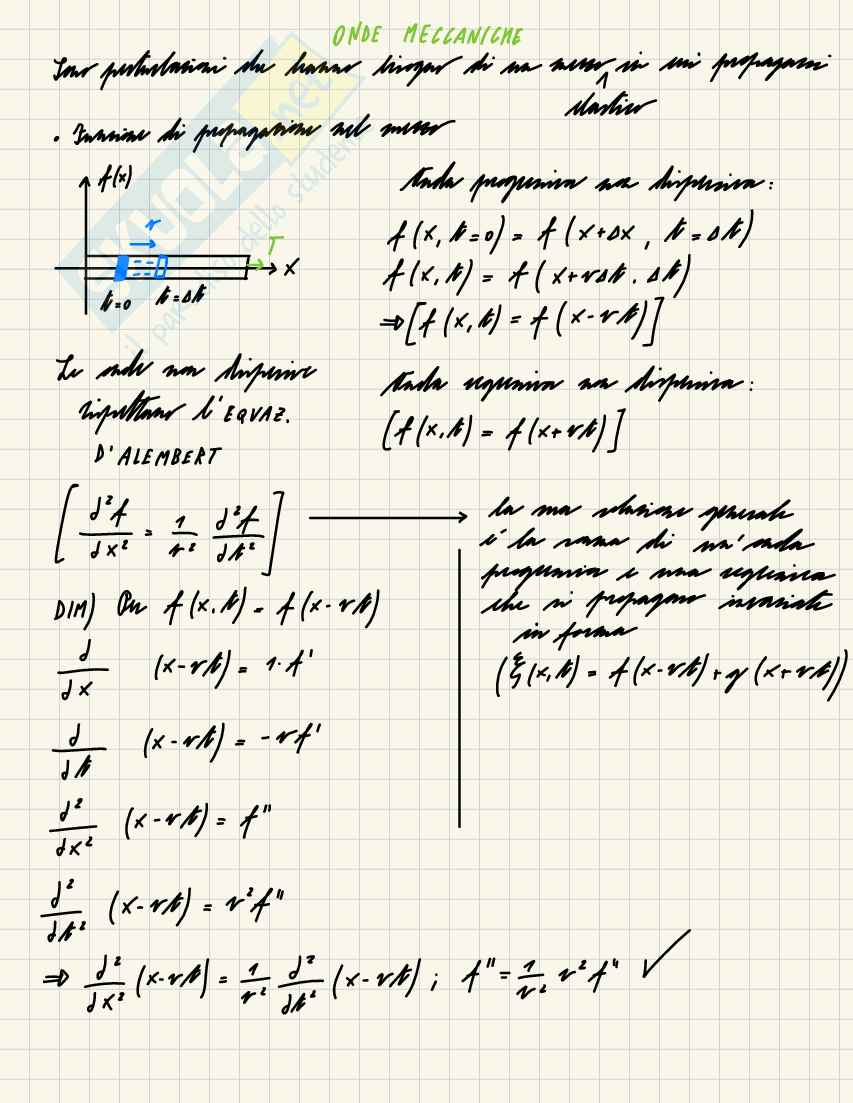 ONDE MECCANICHE
Sono perturbazioni che hanno bisogno di un mezzo in cui propagarsi
elastico
• Funzione di propagazione nel mezzo
f(x)
v
T
x
t=0 t=Δt
Onda progressiva non dispersiva:
f(x, t=0) = f(x+Δx, t=Δt)
f(x,t) = f(x+vΔt, Δt)
⇒[f(x,t) = f(x-vt)]
Le onde non dispersive
rispettano l'EQUAZ.
D'ALEMBERT
Onda regressiva non dispersiva:
[f(x,t) = f(x+vt)]
[d²f/dx² = 1/v² d²f/dt²]
la sua soluzione generale
è la somma di un'onda
progressiva e una regressiva
che si propagano invariate
in forma
(ξ(x,t) = f(x-vt) + g(x+vt))
DIM) Per f(x,t) = f(x-vt)
d/dx (x-vt) = 1·f'
d/dt (x-vt) = -vf'
d²/dx² (x-vt) = f"
d²/dt² (x-vt) = v²f"
⇒ d²/dx² (x-vt) = 1/v² d²/dt² (x-vt) ; f" = 1/v² v²f" ✓
SKUOLA.net
il paradiso dello studente